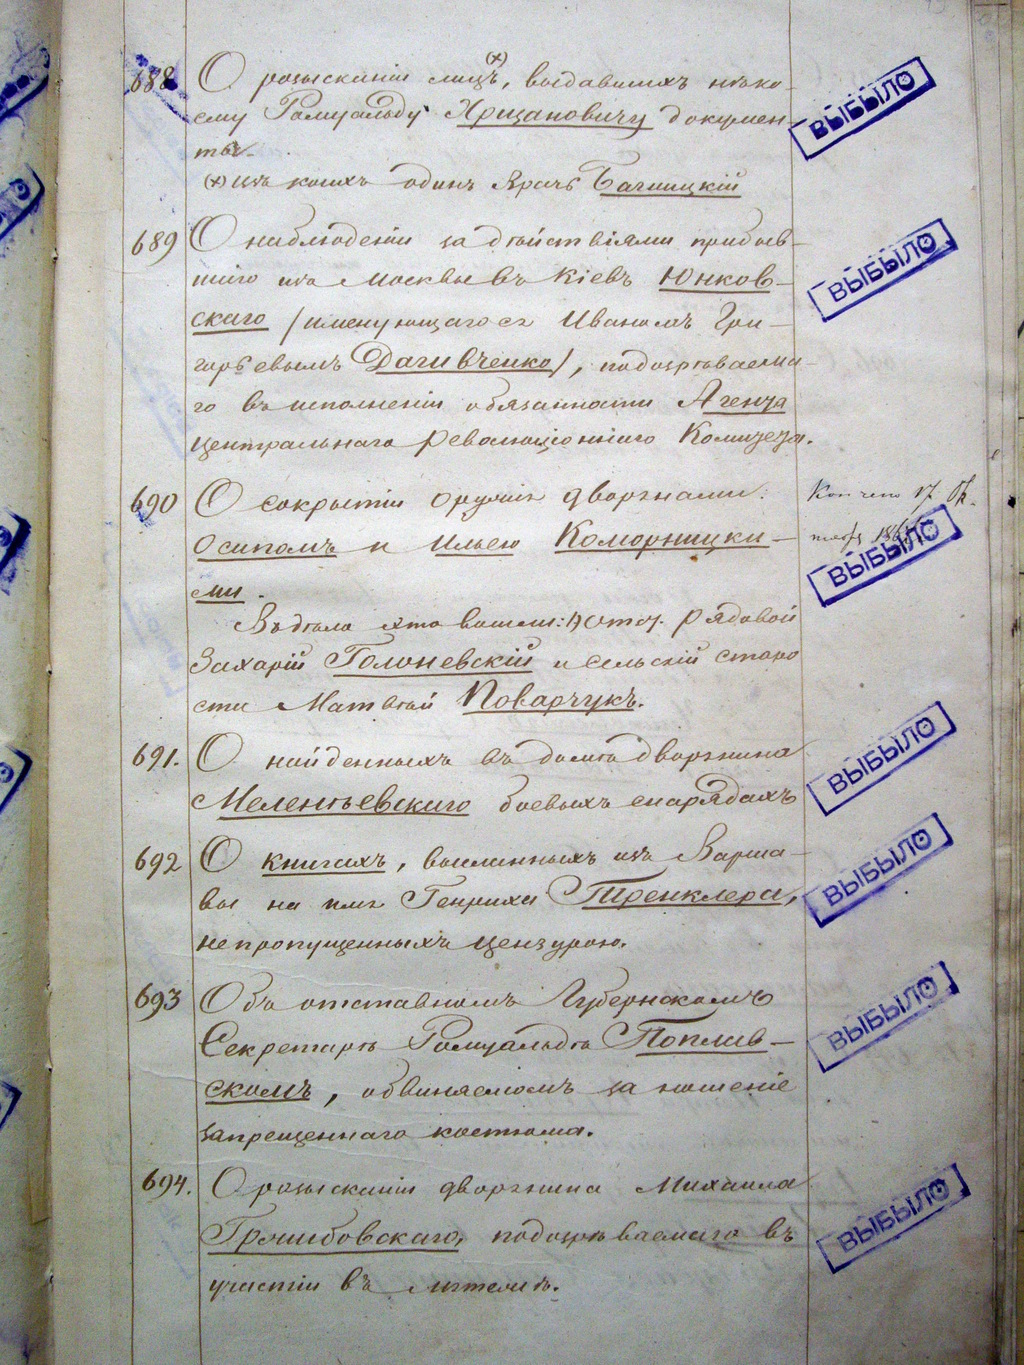 688 О розысканіи лицъ (х), выдавшихъ нѣко-
ему Ромуальду Хрщановичу докумен-
ты.
(х) изъ коихъ одинъ врачъ
ВЫБЫЛО
689 О наблюденіи за дѣйствіями прибыв-
шаго изъ Москвы въ Кіевъ Юнков-
скаго /именующагося Иваномъ Гри-
горьевымъ Дагивченко/, подозрѣваема-
го въ исполненіи обязанности Агента
Центральнаго Революціоннаго Комитета.
ВЫБЫЛО
690 О сокрытіи оружія дворянами:
Осипомъ и Ильею Коморницки-
ми.
Въ дѣло это вошли: рядовой
Захарій Голоневскій и сельскій старо
ста Матвѣй Поварчукъ.
Кончено 17
ВЫБЫЛО
691. О найденныхъ въ домѣ дворянина
Мелентьевскаго боевыхъ снарядахъ
ВЫБЫЛО
692 О книгахъ, высланныхъ изъ Варша-
вы на имя Генриха Тренклера,
непропущенныхъ цензурою.
ВЫБЫЛО
693 Объ отставномъ Губернскомъ
Секретарѣ Ромуальдѣ Поплав-
скомъ, обвиняемомъ за ношеніе
запрещеннаго костюма.
ВЫБЫЛО
694. О розысканіи дворянина Михаила
подозрѣваемаго въ
участіи въ мятежѣ.
ВЫБЫЛО